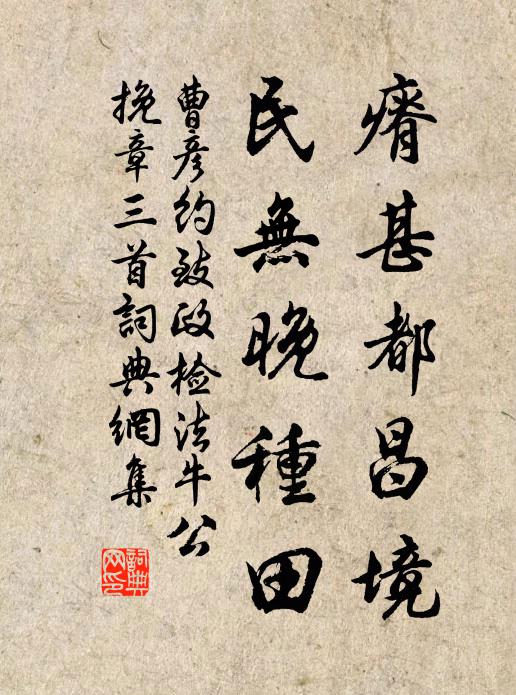 瘠甚都昌境
民無晚種田
曹彥約致政檢法牛公
挽章三首詞典網集
詞典網印